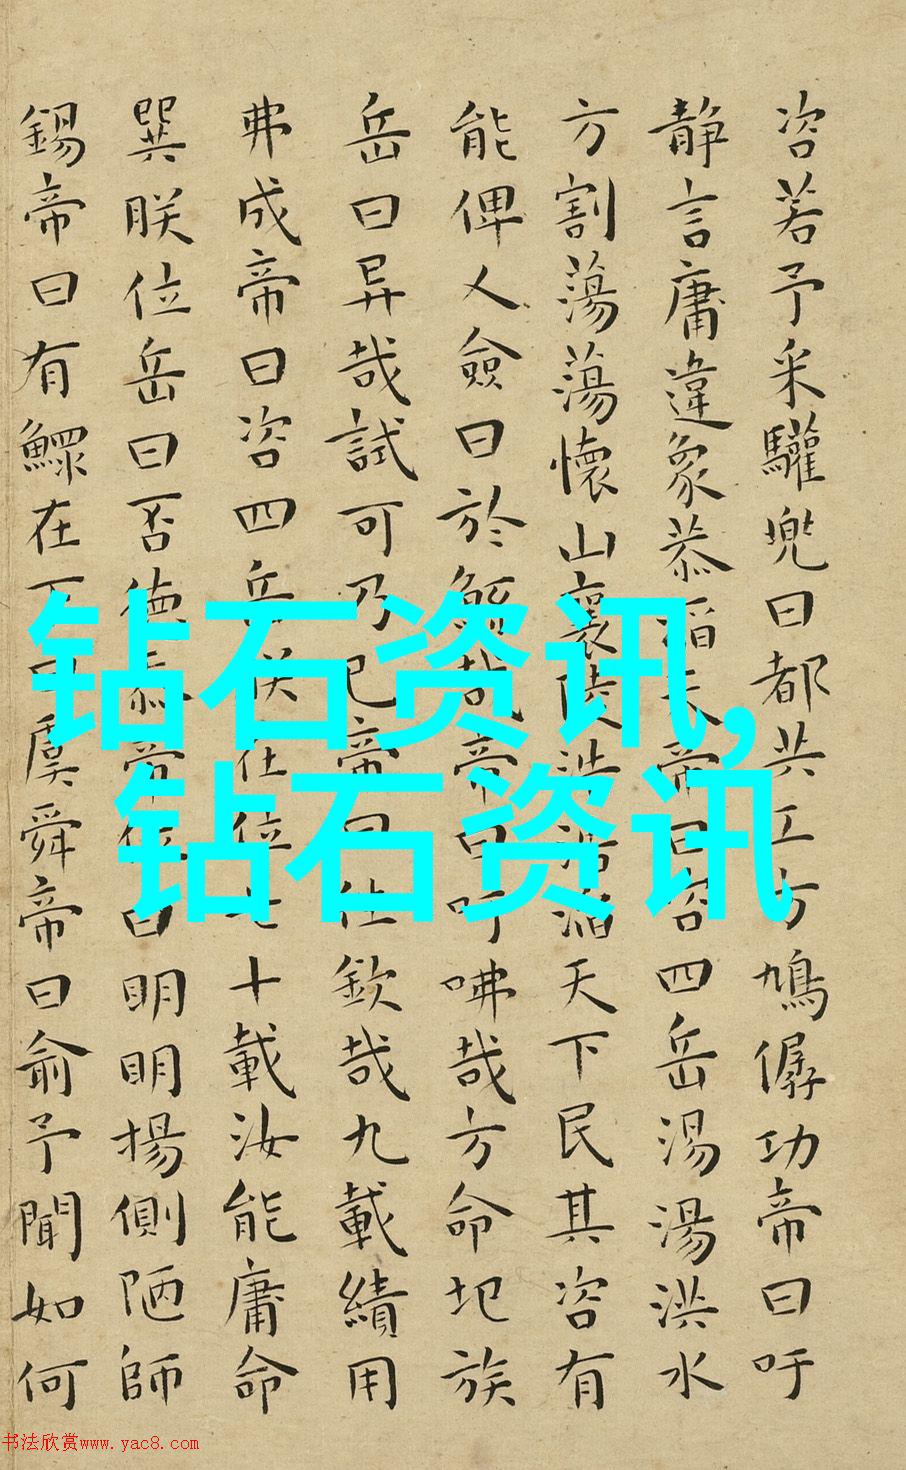 咨若予采驩兜曰都共工方鳩僝功帝曰吁
静言庸違象恭滔天帝曰咨四岳湯湯洪水
方割蕩蕩懷山襄陵浩浩滔天下民其咨有
能俾人僉曰於鯀哉帝曰吁咈哉方命圮族
岳曰异哉試可乃已帝曰往欽哉九載績用
弗成帝曰咨四岳朕在位七十載汝能庸命
巽朕位岳曰否德忝帝位曰明明揚側陋師
錫帝曰有鰥在下曰虞舜帝曰俞予聞如何
钻石资讯,
钻石资讯
书法欣赏www.yac8.com